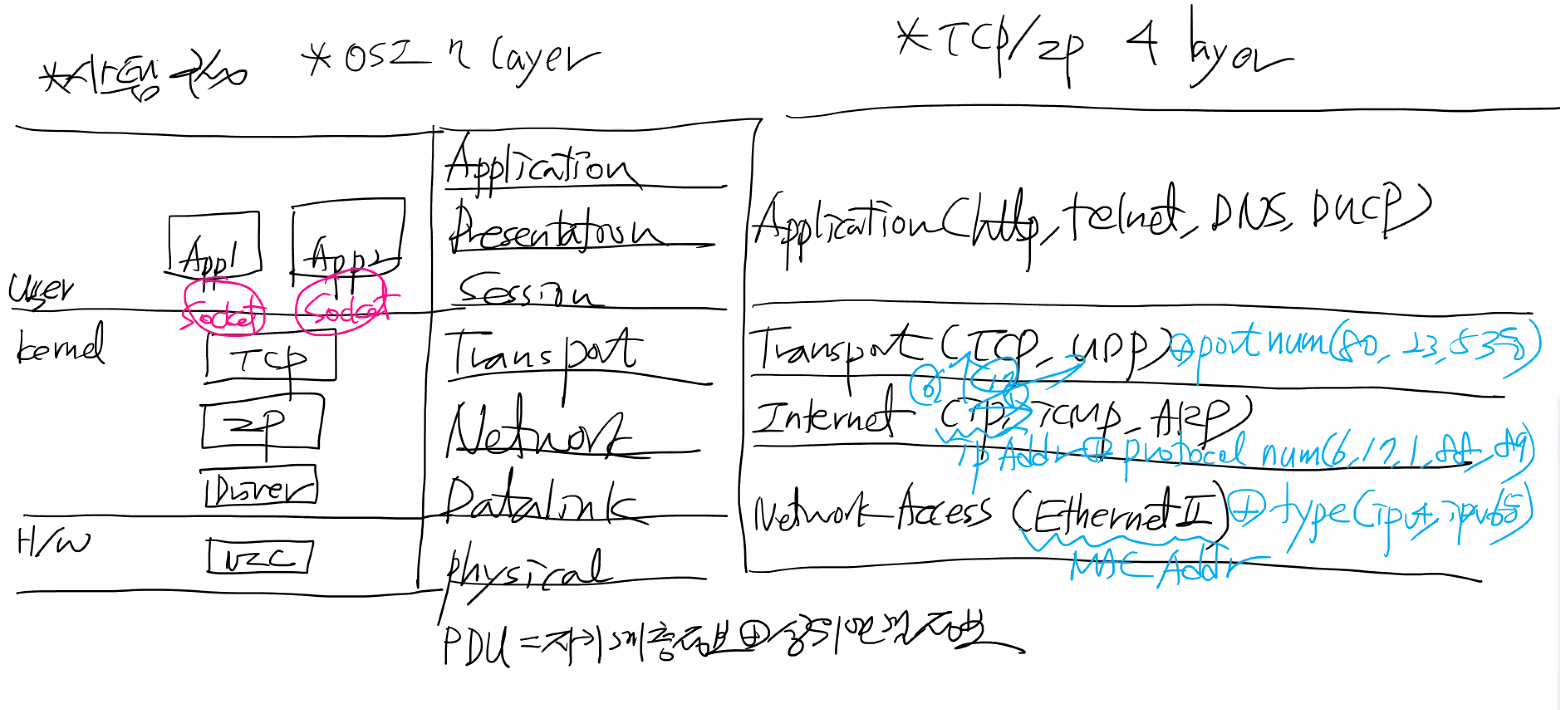 *OSI 7 layer
*TCP/IP 4 layer
App1
App2
user
Socket
Socket
kernel
TCP
IP
Driver
H/W
NIC
Application
Presentation
Session
Transport
Network
Datalink
physical
Application(http, telnet, DNS, DHCP)
Transport (TCP, UDP)⊕port num(80, 23, 53등)
Internet (IP, ICMP, ARP)
ip Addr ⊕ protocol num(6, 17, 1, 88, 89)
Network Access (Ethernet II)⊕type(ipv4, ipv6등)
MAC Addr
PDU = 자기계층정보⊕상위연결정보